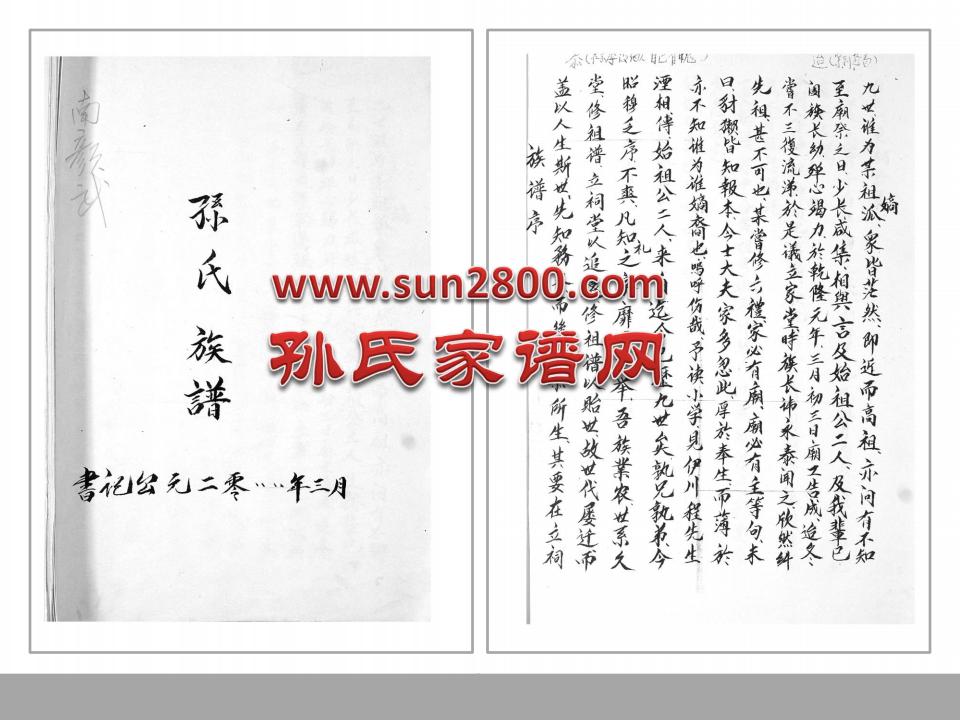 南彦武
孫氏族譜
書记公元二零‥‥年三月
族谱序
盖以人生斯世、先知務 而 所生、其要在立祠
堂、修祖谱、立祠堂以追 修祖谱以贻世、故世代屡迁而
昭穆之序、不爽、凡知礼之 靡 举、吾族業农、世系久
湮相傳、始祖公二人、来 迄今 九世矣孰兄孰弟、今
亦不知谁为谁嫡裔也、呜呼伤哉、予读小学、見伊川程先生
曰豺獭皆知報本、今士大夫家多忽此、厚於奉生、而薄於
先祖、甚不可也、某嘗修六禮、家必有廟、廟必有主等句、未
嘗不三復流涕、於是議立家堂、時族长讳永泰闻之、欣然糾
闔族长幼、殫心竭力、於乾隆元年、三月初三日、廟工告成、迨冬
至廟祭之日、少长咸集、相與言及始祖公二人、及我輩已
九世、谁为某祖嫡派、衆皆茫然、即近而高祖、亦间有不知
www.sun2800.com
孙氏家谱网